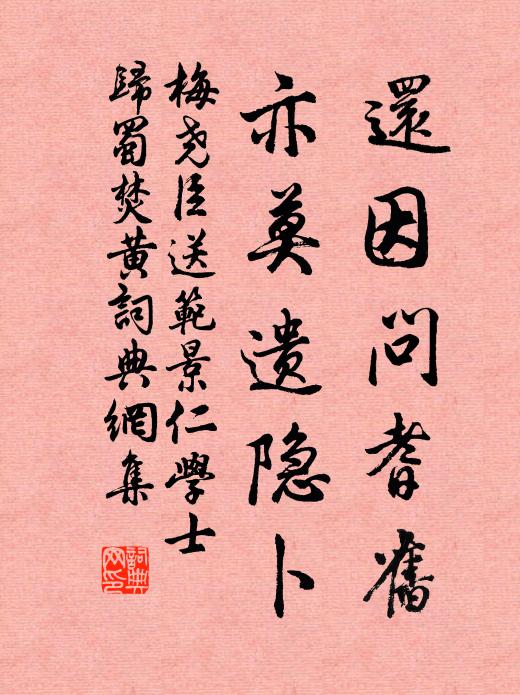 還因問耆舊
亦莫遺隐卜
梅尧臣送範景仁學士
歸蜀焚黄詞典網集
詞典网印